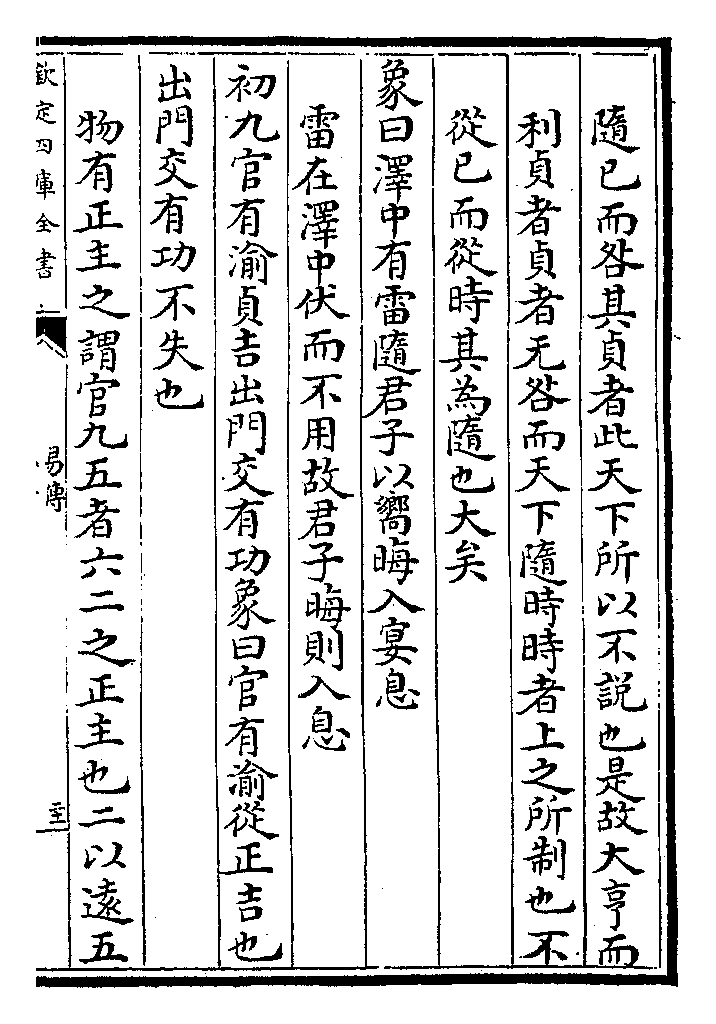 隨已而咎其貞者此天下所以不説也是故大亨而
利貞者貞者无咎而天下隨時時者上之所制也不
從已而從時其為隨也大矣
象曰澤中有雷隨君子以嚮晦入宴息
雷在澤中伏而不用故君子晦則入息
初九官有渝貞吉出門交有功象曰官有渝從正吉也
出門交有功不失也
物有正主之謂官九五者六二之正主也二以逺五
欽定四庫全書
易傳